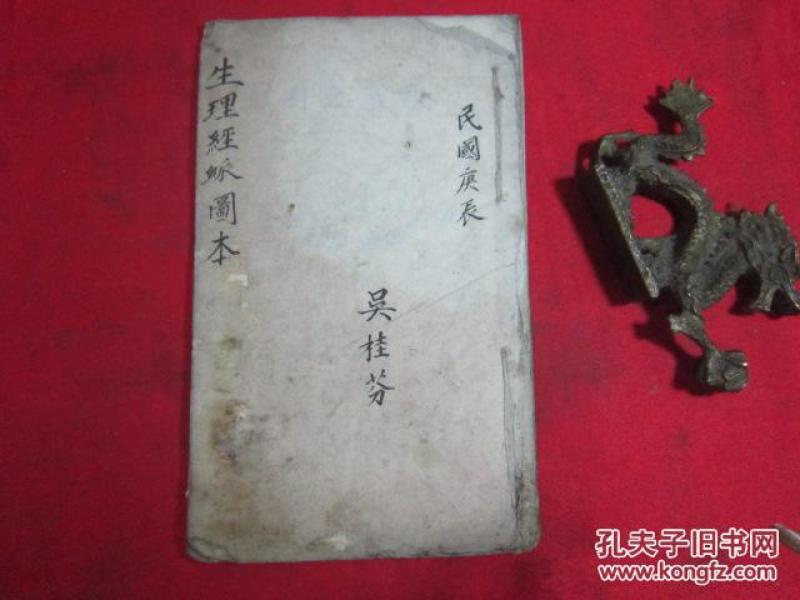 民國庚辰
吳桂芬
生理經脈圖本
孔夫子旧书网
www.kongfz.com